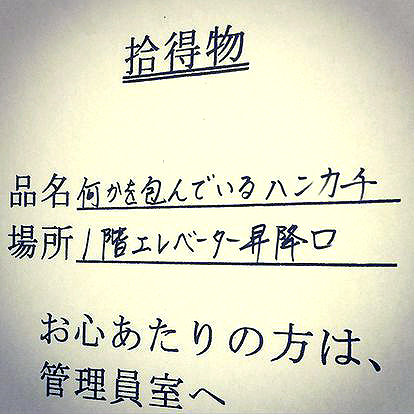 拾得物
品名 何かを包んでいるハンカチ
場所 1階エレベーター昇降口
お心あたりの方は、
管理員室へ